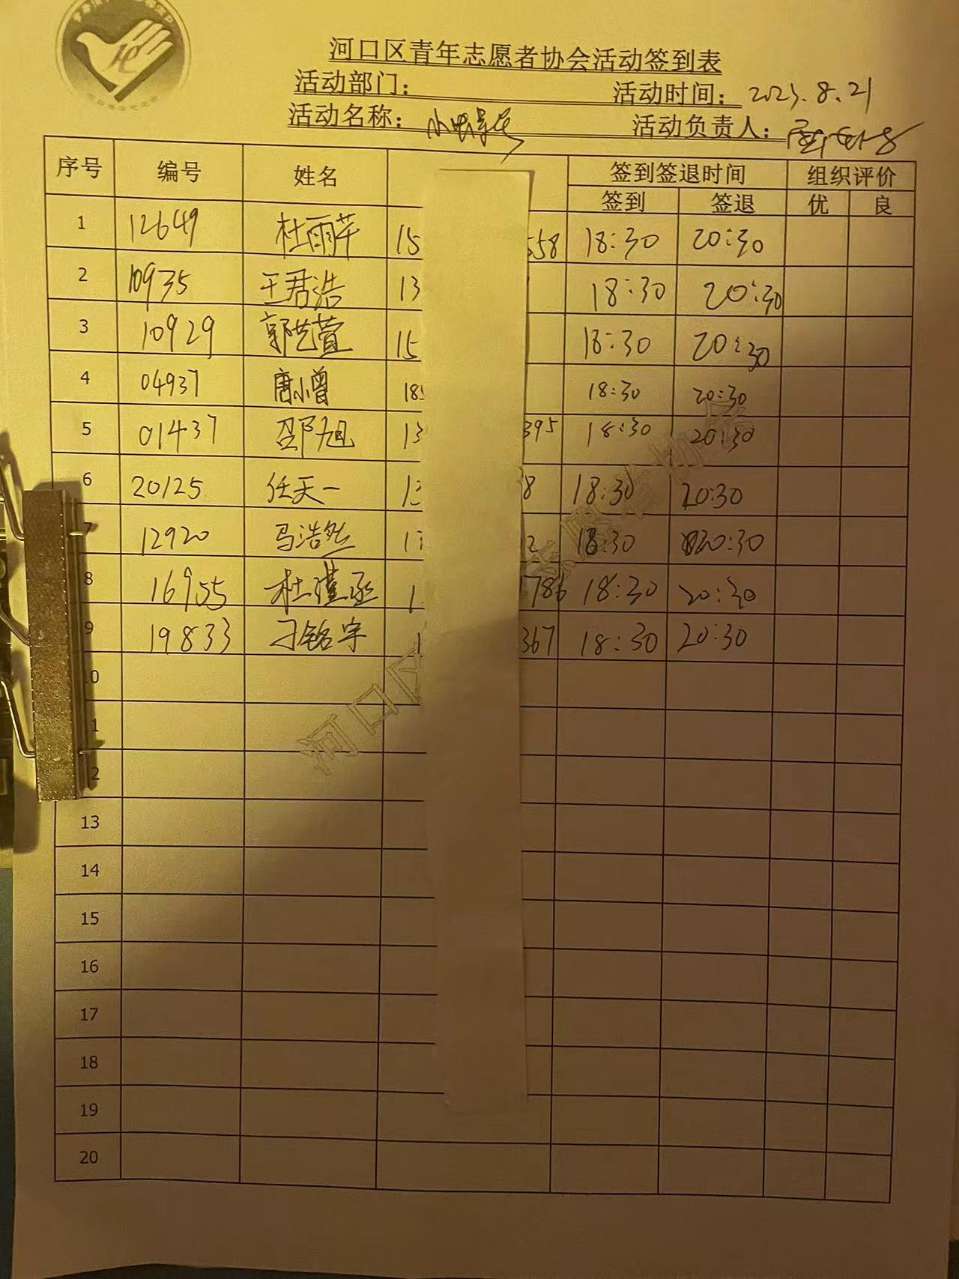 河口区青年志愿者协会活动签到表
活动部门： 活动时间：2023.8.21
活动名称： 活动负责人：
序号 编号 姓名 签到签退时间 组织评价
签到 签退 优 良
1 12649 杜雨芹 15 558 18:30 20:30
2 10935 王君浩 13 18:30 20:30
3 10929 郭艺萱 15 18:30 20:30
4 04937 唐小曾 18 18:30 20:30
5 01437 邵旭 13 395 18:30 20:30
6 20125 任天一 13 8 18:30 20:30
7 12920 马浩然 1 2 18:30 20:30
8 16955 杜瑾丞 1 786 18:30 20:30
9 19833 刁铭宇 1 367 18:30 20:30
10
11
12
13
14
15
16
17
18
19
20
河口区